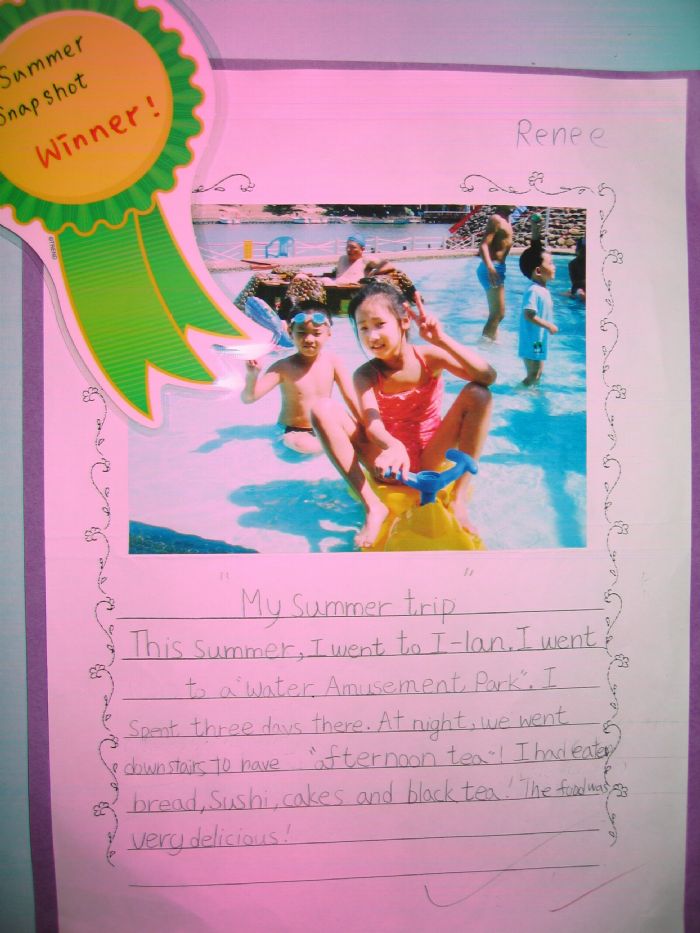 Summer
Snapshot
Winner!
Renee
"My Summer trip"
This summer, I went to I-lan. I went
to a "Water Amusement Park". I
spent three days there. At night, we went
downstairs to have "afternoon tea"! I had eaten
bread, sushi, cakes and black tea! The food was
very delicious!